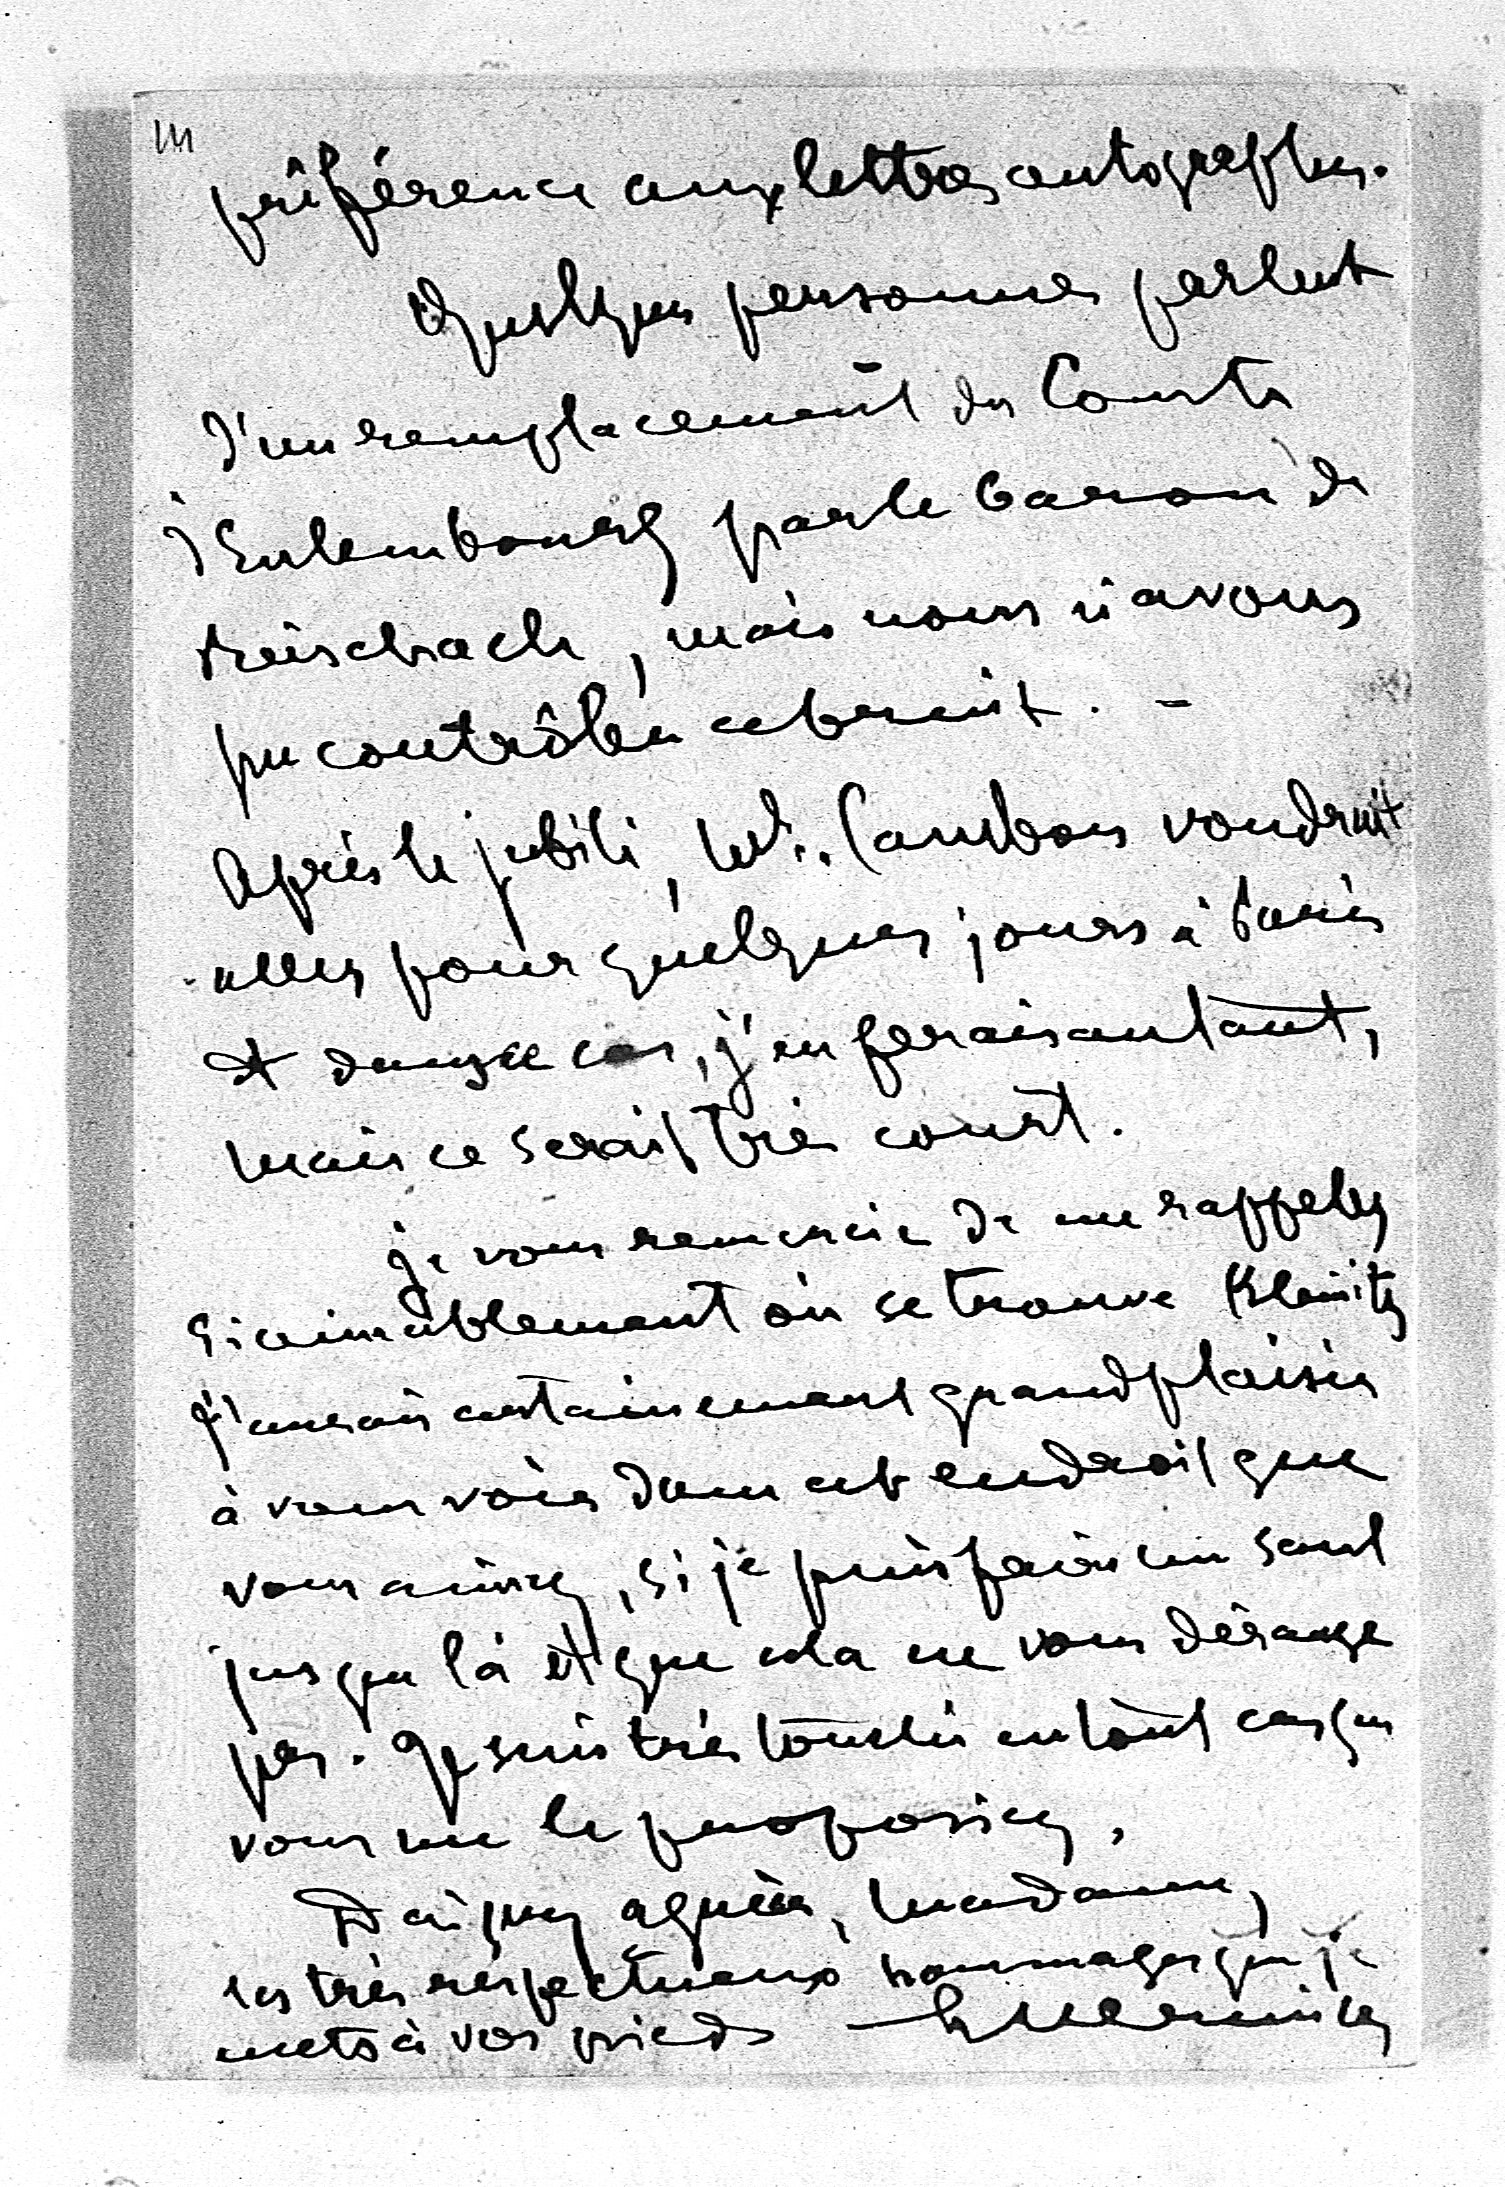 III
préférence aux lettres autographes.
Quelques personnes parlent
d'un remplacement du Comte
d'Eulembourg par le baron de
Reischach, mais nous n'avons
pu contrôler ce bruit. -
Après le jubilé, M. Cambon voudrait
aller pour quelques jours à Paris
et dans ce cas, j'en ferais autant,
mais ce serait très court.
Je vous remercie de me rappeler
si aimablement où se trouve Kleinitz
j'aurais certainement grand plaisir
à vous voir dans cet endroit que
vous aimez, si je puis faire un saut
jusque là et que cela ne vous dérange
pas. Je suis très touché en tout cas que
vous me le proposiez.
Daignez agréer, Madame,
les très respectueux hommages que je
mets à vos pieds